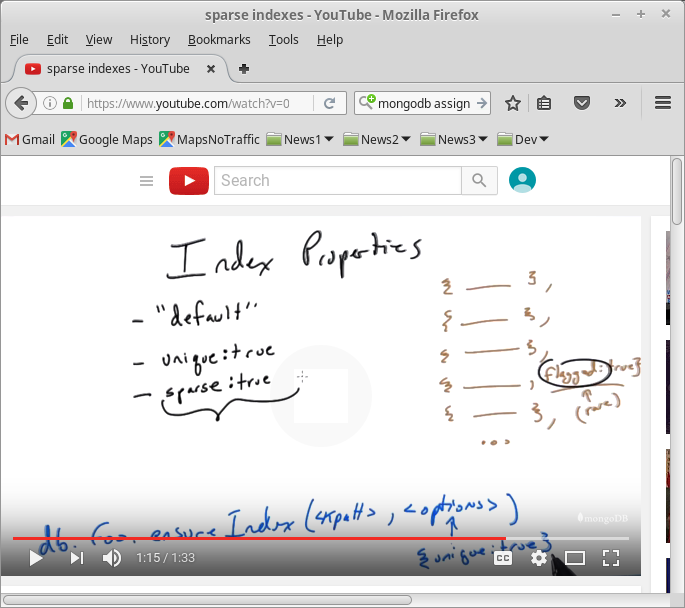 sparse indexes - YouTube - Mozilla Firefox
File Edit View History Bookmarks Tools Help
sparse indexes - YouTube
https://www.youtube.com/watch?v=0
mongodb assign
Gmail Google Maps MapsNoTraffic News1 News2 News3 Dev
Search
Index Properties
- "default"
- unique:true
- sparse:true
{ ___ },
{ ___ },
{ ___ },
{ ___ , flagged:true}
{ ___ },
(rare)
...
db.foo.ensureIndex(<kpath>, <options>)
{unique:true}
mongoDB
1:15 / 1:33
CC